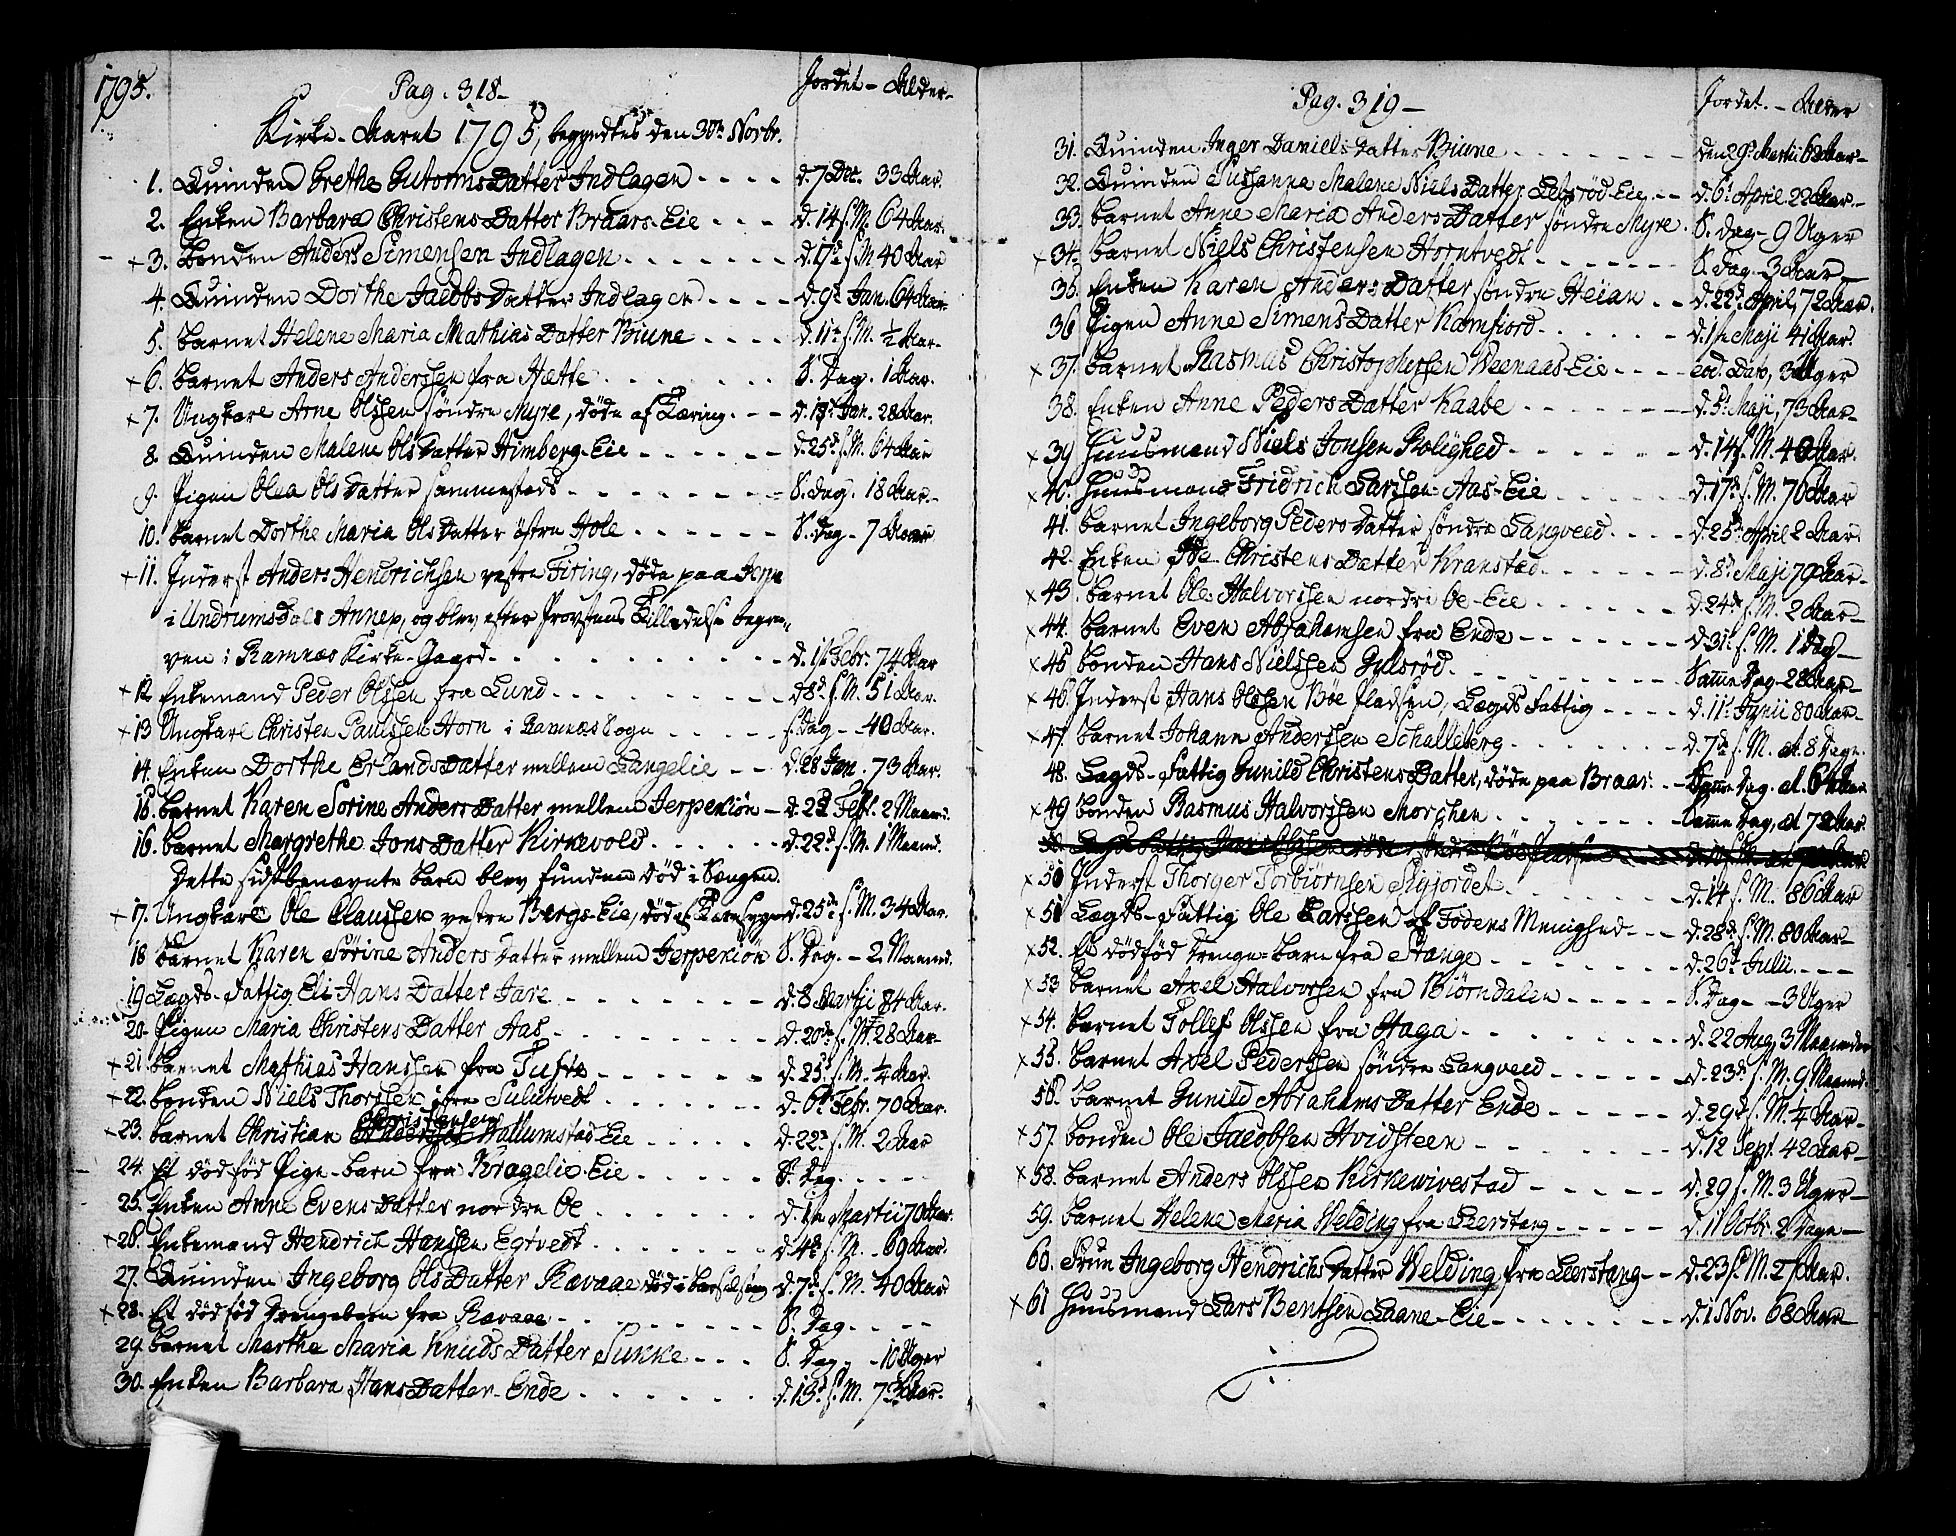 1795.
Pag. 318-
Jordet - Alder-
Kirke-Aaret 1795, begyndtes den 30te Novbr.
1. Quinden Grethe Gutorms Datter Indlagen - - - - d. 7 Dec. 33 Aar.
2. Enken Barbara Christens Datter Braars-Eie - - - d. 14 s. M. 64 Aar.
+ 3. Bonden Anders Simensen Indlagen - - - - d. 17de s. M 40 Aar
4. Quinden Dorthe Jacobs Datter Indlagen - - - - d. 9de Jan. 64 Aar.
5. Barnet Helene Maria Mathias Datter Biune - - - - d. 11te s. M. ½ Aar-
+ 6. Barnet Anders Anderssen fra Hætte - - - - S. Dag. 1 Aar.
+ 7. Ungkarl Arne Olssen søndre Myre, døde af Tæring - - - Jan. 28 Aar.
8. Quinden Malene Ols Datter Himberg-Eie - - - - d. 25de s. M. 64 Aar
9. Pigen Olea Ols Datter sammesteds - - - - S. Dag. 18 Aar-
10. Barnet Dorthe Maria Ols Datter østre Hole - - - - S. Dag - 7 Aar
+ 11. Inderst Anders Hendrichsen vestre Firing, døde paa
i Undrumsdals Annex, og blev efter Provstens Tilladelse begra-
ven i Ramnæs Kirke-Gaard - - - - d. 1te Febr. 74 Aar
+ 12 Enkemand Peder Olssen fra Lund - - - - d 8de s. M. 51 Aar.
+ 13 Ungkarl Christen Paulssen Horn i Ramnæs Sogn - - - - s. Dag - 40 Aar.
14. Enken Dorthe Erlands Datter mellem Langelie - - d. 28 Jan. 73 Aar.
15. Barnet Karen Sorine Anders Datter mellem Jerpekiøn - d. 22 Febr. 2 Maaned.
16. Barnet Margrethe Jons Datter Kirkevold - - - - d. 22de s. M. 1 Maaned.
Dette sidstbenævnte Barn blev funden død i Sængen.
+ 17. Ungkarl Ole Claussen vestre Bergs-Eie, død af d. 25de s. M. 34 Aar.
18 Barnet Karen Sørine Anders Datter mellem Jerpekiøn S. Dag. - 2 Maaned.
19 Lægds-Fattig Eli Hans Datter Jare - - - - d. 8 Martii 84 Aar.
20. Pigen Maria Christens Datter Aas - - - - d. 20de s. M. 28 Aar-
+ 21. Barnet Mathias Hanssen fra - - - - d. 25de s. M. ¼ Aar.
+ 22. Bonden Niels Thorssen fra Sulutvedt - - - - d. 6te Febr. 70 Aar.
+ 23. Barnet Christian Christensen Hallumstad-Eie - - - - d. 22de s. M. 2 Aar
24. Et død-fød Pige-Barn fra Kragelie-Eie - - - - S. Dag. - - - -
25. Enken Anne Evens Datter nordre Oe - - - - d. 1te Martii 70 Aar.
+ 26. Enkemand Hendrich Hanssen Egtvedt - - - - d. 4de s. M. - 69 Aar.
27. Quinden Ingeborg Ols Datter Ravaae død i Barselseng d. 7de s. M. 40 Aar
+ 28. Et død-fød Drengebarn fra Ravaae - - - - S. Dag. - - - -
29. Barnet Marthe Maria Knuds Datter Sukke - - - S. Dag - 10 Uger
30. Enken Barbara Hans Datter Ende - - - - d. 13de s. M. 73 Aar.
Pag. 319-
Jordet. - Alder
31. Quinden Inger Daniels Datter Biune - - - - den 29de Martii Aar-
32. Quinden Susanna Malene Niels Datter -Eie - - d. 6te April 22 Aar-
33. Barnet Anne Maria Anders Datter søndre Myre. S. Dag- 9 Uger
+ 34. Barnet Niels Christensen Horntvedt - - - - S. Dag - 3 Aar-
35. Enken Karen Anders Datter søndre Heian - - d. 22de April, 72 Aar.
36 Pigen Anne Simens Datter Kamfiord - - - - d. 1te Maji 41 Aar.
+ 37. Barnet Rasmus Christophersen Weenaas-Eie - - - - eod. Dato, 3 Uger
38. Enken Anne Peders Datter Kaabe - - - - d. 5te Maji, 73 Aar-
+ 39 Huusmand Niels Jonsen Rolighed - - - - d. 14 s. M. 40 Aar.
+ 40. Huusmand Fridrich Larssen Aas-Eie - - - - d. 17de s. M. 70 Aar
41. Barnet Ingeborg Peders Datter søndre Langveed - - - - d. 25de April 2 Aar.
42. Enken Christens Datter Kranstad - - - - d. 8de Maji 79 Aar-
+ 43 Barnet Ole Halvorssen nordre Oe-Eie - - - - d. 24de s. M. 2 Aar-
+ 44. Barnet Even Abrahamsen fra Ende - - - - d. 31te s. M. 1 Dag-
+ 45 Bonden Hans Nielssen Gulsrød - - - - Samme Dag - 28 Aar-
+ 46. Inderst Hans Olssen Bøe Pladsen, Lægds Fattig - - - - d. 11te Junii 80 Aar-
+ 47. Barnet Johann Anderssen Schalleberg - - - - d. 7de s. M. at. 8 Dage.
48. Lægds-Fattig Gunild Christens Datter, døde paa Braar - - Samme Dag. at. Aar
+ 49 Bonden Rasmus Halvorssen Morschen - - - - Samme Dag, at 72 Aar.
+ 50 Inderst Thorger Torbiørnsen - - - - d. 14 s. M. 86 Aar
+ 51 Lægds-Fattig Ole Larssen af Fodens Menighed - - - d. 28de s. M. 80 Aar-
+ 52. Et dødfød Drenge-Barn fra Stange - - - - d. 26de Julii - - -
+ 53 Barnet Axel Halvorsen fra Biørndalen - - - - S. Dag - - 3 Uger
+ 54. Barnet Tollef Olssen fra Haga - - - - d. 22 Aug. 3 Maaneder
+ 55. Barnet Axel Pederssen søndre Langveed - - - - d. 23de s. M. 9 Maaned.
56. Barnet Gunild Abrahams Datter Ende - - - - d. 29de s. M. ¼ Aar-
+ 57. Bonden Ole Jacobsen Hvidsteen - - - - d. 12 Sept. 42 Aar-
+ 58. Barnet Anders Olssen Kirkewivestad - - - - d. 29 s. M. 3 Uger-
59. Barnet Helene Maria Welding fra Leerstang - - - - d. 11 Octbr. 2 Dage-
60. Frun Ingeborg Hendrichs Datter Welding fra Leerstang - - d. 23 s. M. 27 Aar.
+ 61 Huusmand Lars Bentsen Laane-Eie - - - - d. 1 Nov. 68 Aar-